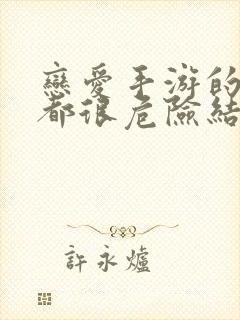 戀愛手游的
都很危險結
許永爐